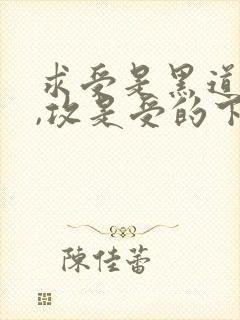 求受是黑道
,攻是受的下
陳佳蕾